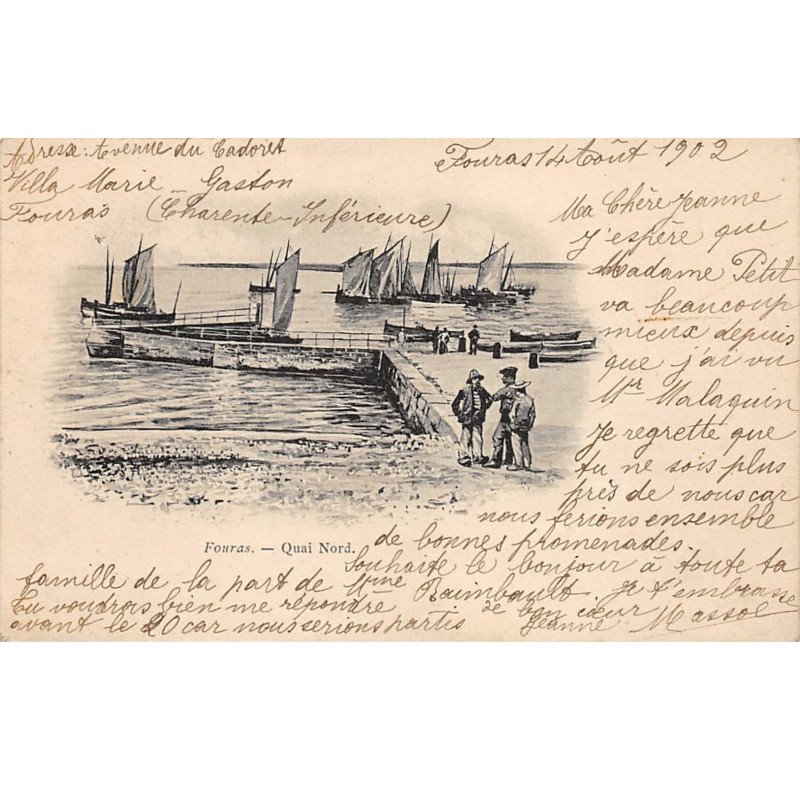 Adresse: Avenue du Cadoret
Villa Marie - Gaston
Fouras (Charente-Inférieure)
Fouras 14 Août 1902
Ma Chère Jeanne
J'espère que
Madame Petit
va beaucoup
mieux depuis
que j'ai vu
Mr Malaquin
Je regrette que
tu ne sois plus
près de nous car
nous ferions ensemble
de bonnes promenades.
Souhaite le bonjour à toute ta
famille de la part de Mme Raimbault. Je t'embrasse
de bon cœur
Jeanne Massol
Tu voudras bien me répondre
avant le 20 car nous serions partis
Fouras. — Quai Nord.